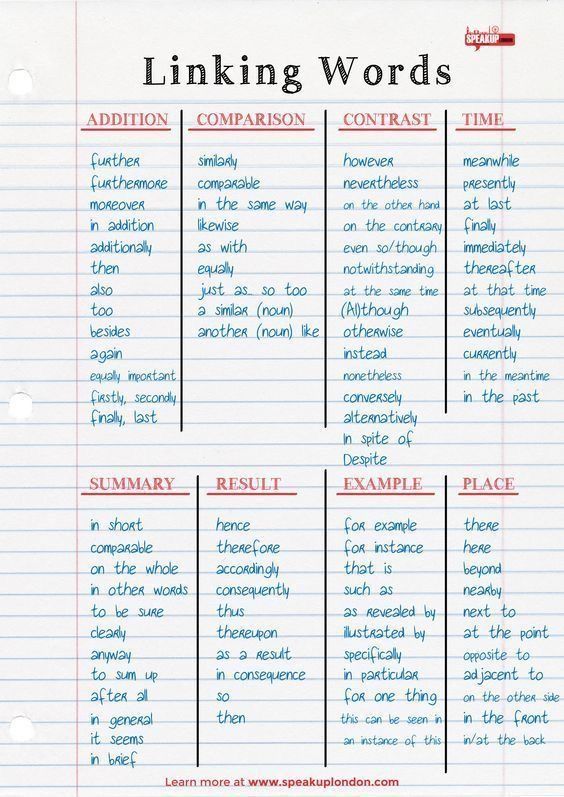 SPEAKUP
Linking Words
ADDITION
further
furthermore
moreover
in addition
additionally
then
also
too
besides
again
equally important
firstly, secondly
finally, last
COMPARISON
similarly
comparable
in the same way
likewise
as with
equally
just as... so too
a similar (noun)
another (noun) like
CONTRAST
however
nevertheless
on the other hand
on the contrary
even so/though
notwithstanding
at the same time
(Al)though
otherwise
instead
nonetheless
conversely
alternatively
In spite of
Despite
TIME
meanwhile
presently
at last
finally
immediately
thereafter
at that time
subsequently
eventually
currently
in the meantime
in the past
SUMMARY
in short
comparable
on the whole
in other words
to be sure
clearly
anyway
to sum up
after all
in general
it seems
in brief
RESULT
hence
therefore
accordingly
consequently
thus
thereupon
as a result
in consequence
so
then
EXAMPLE
for example
for instance
that is
such as
as revealed by
illustrated by
specifically
in particular
for one thing
this can be seen in
an instance of this
PLACE
there
here
beyond
nearby
next to
at the point
opposite to
adjacent to
on the other side
in the front
in/at the back
Learn more at www.speakuplondon.com